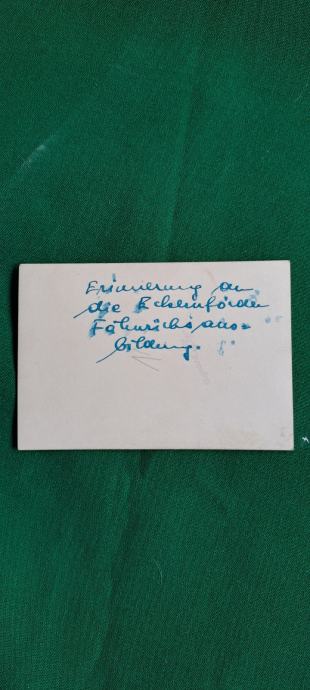 Erinnerung an
die Eckernförder
Fähnrichsaus-
bildung.